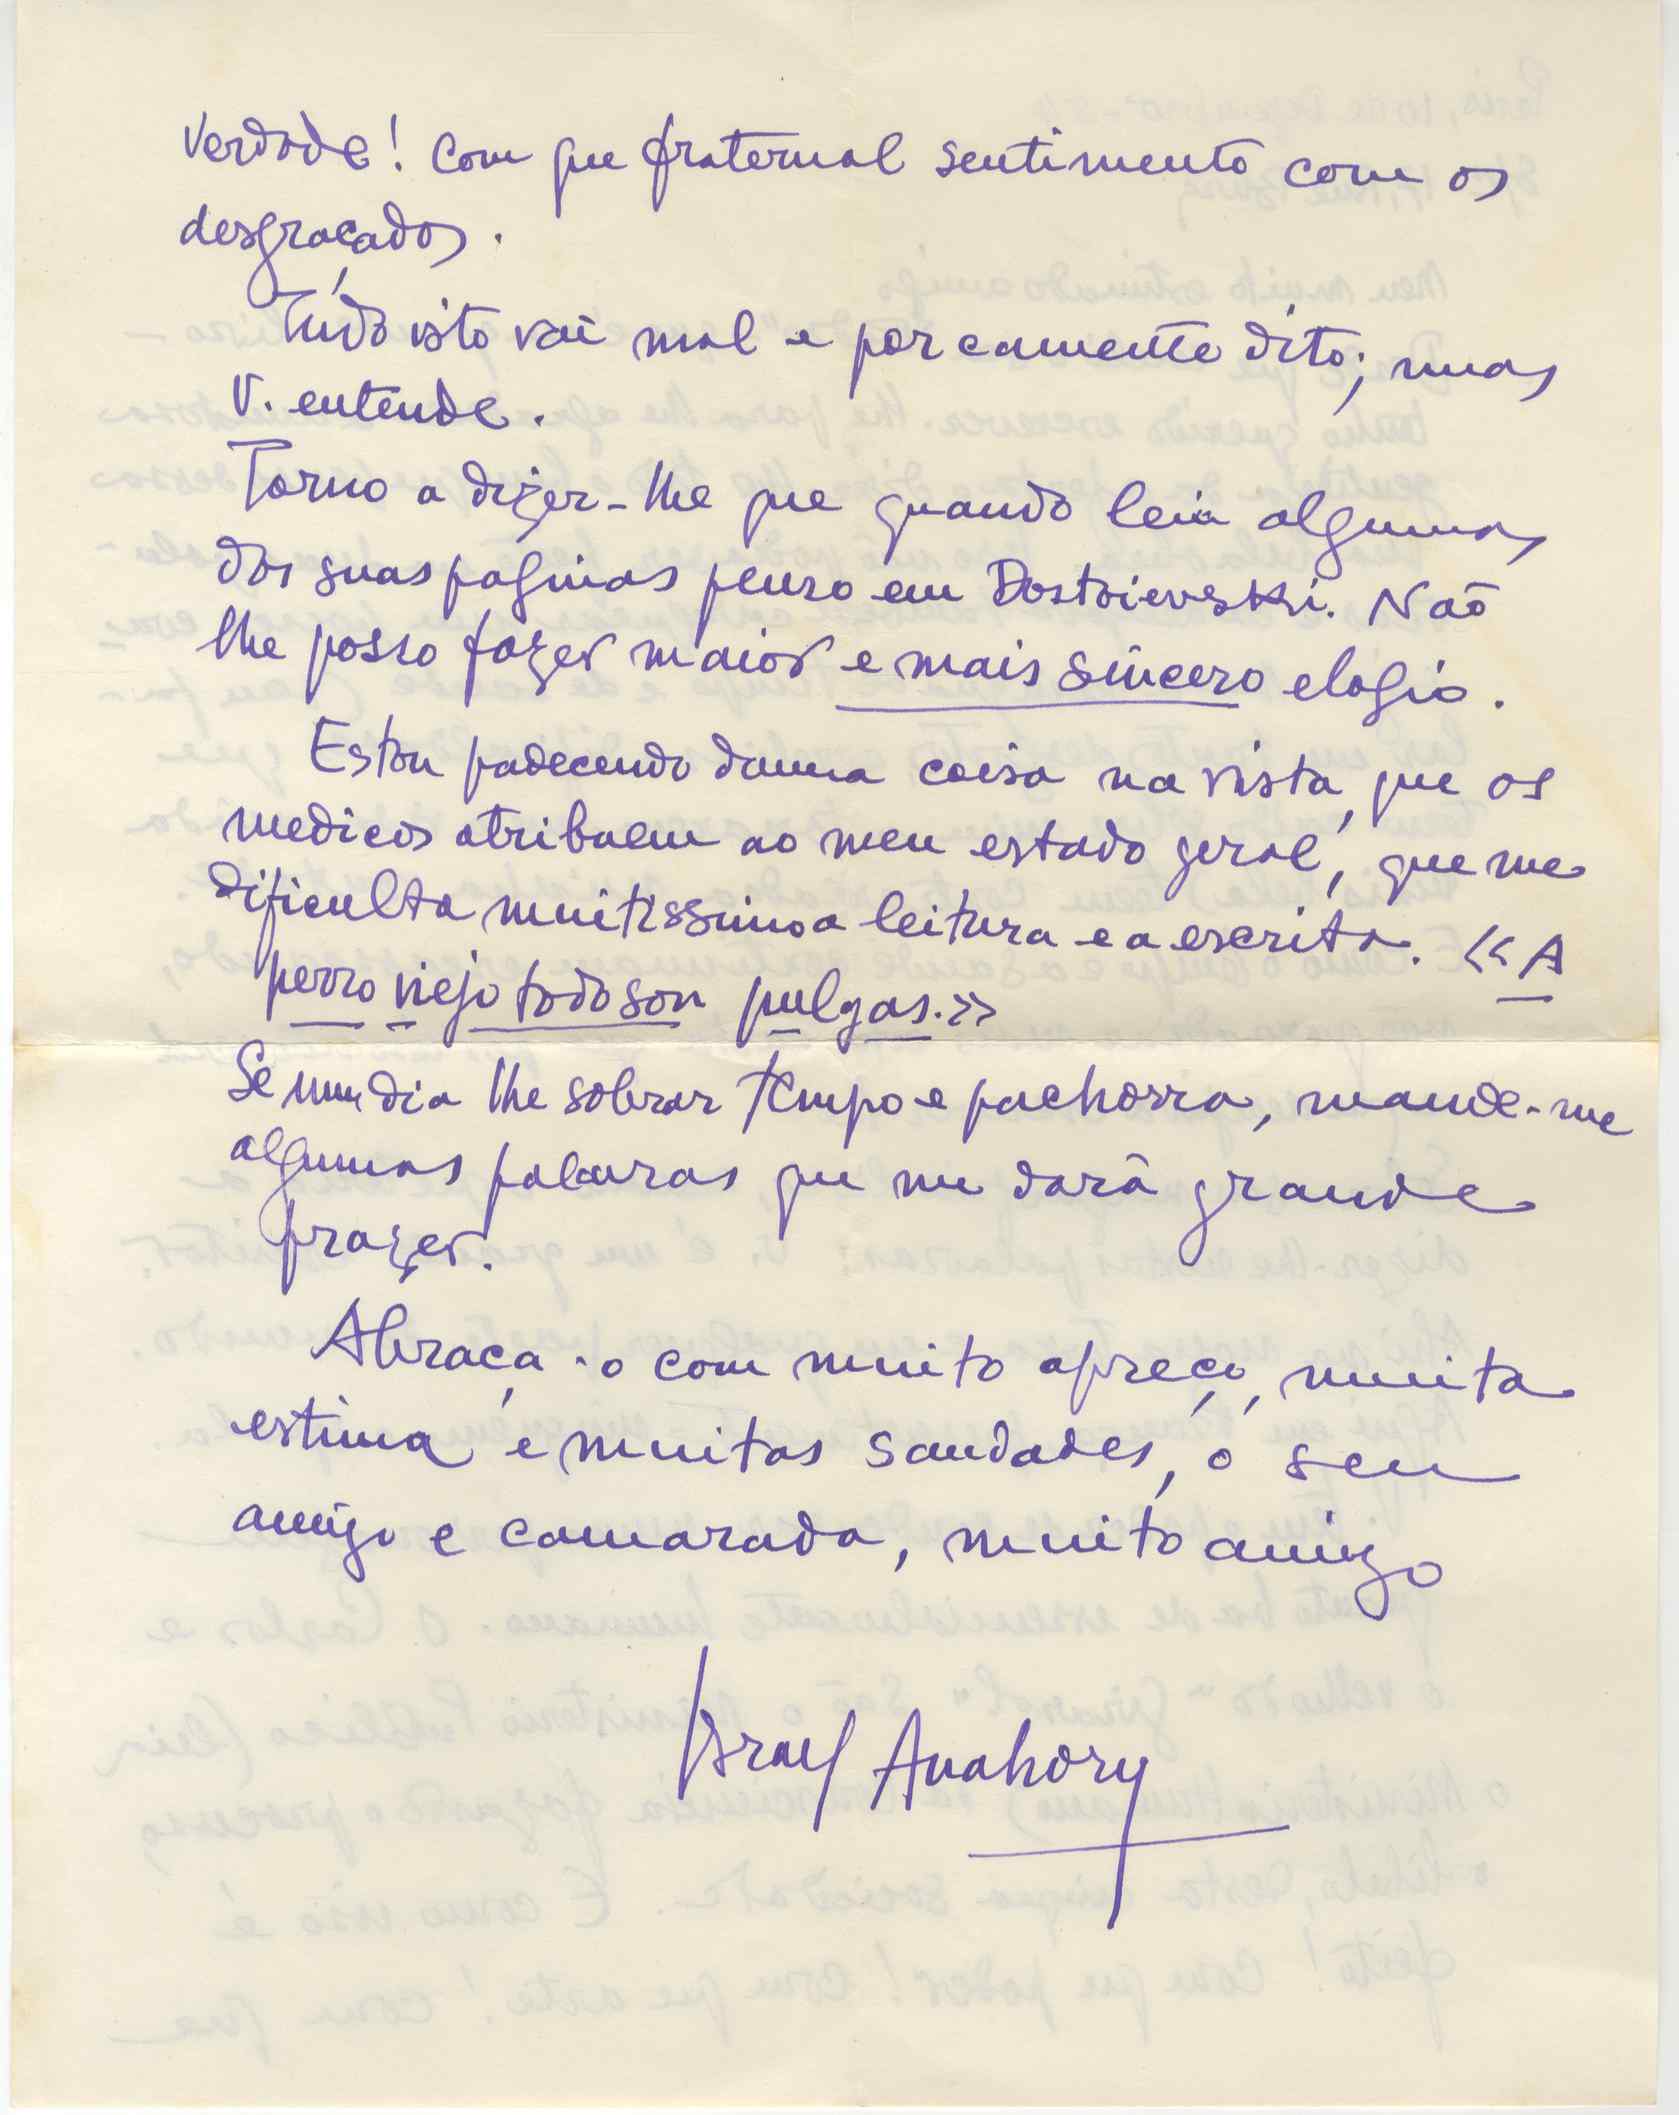 verdade! Com que fraternal sentimento com os
desgraçados.
Túdo isto vai mal e porcamente dito; mas
V. entende.
Torno a dizer-lhe que quando leio algumas
das suas paginas penso em Dostoievski. Naõ
lhe posso fazer maior e mais sincero elogio.
Estou padecendo duma coisa na vista, que os
medicos atribuem ao meu estado geral, que me
dificulta muitissimo a leitura e a escrita. «A
perro viejo todo son pulgas.»
Se um dia lhe sobrar tempo e pachorra, mande-me
algumas palavras que me dará grande
prazer.
Abraça-o com muito apreço, muita
estima e muitas saudades, o seu
amigo e camarada, muito amigo
Israel Anahory